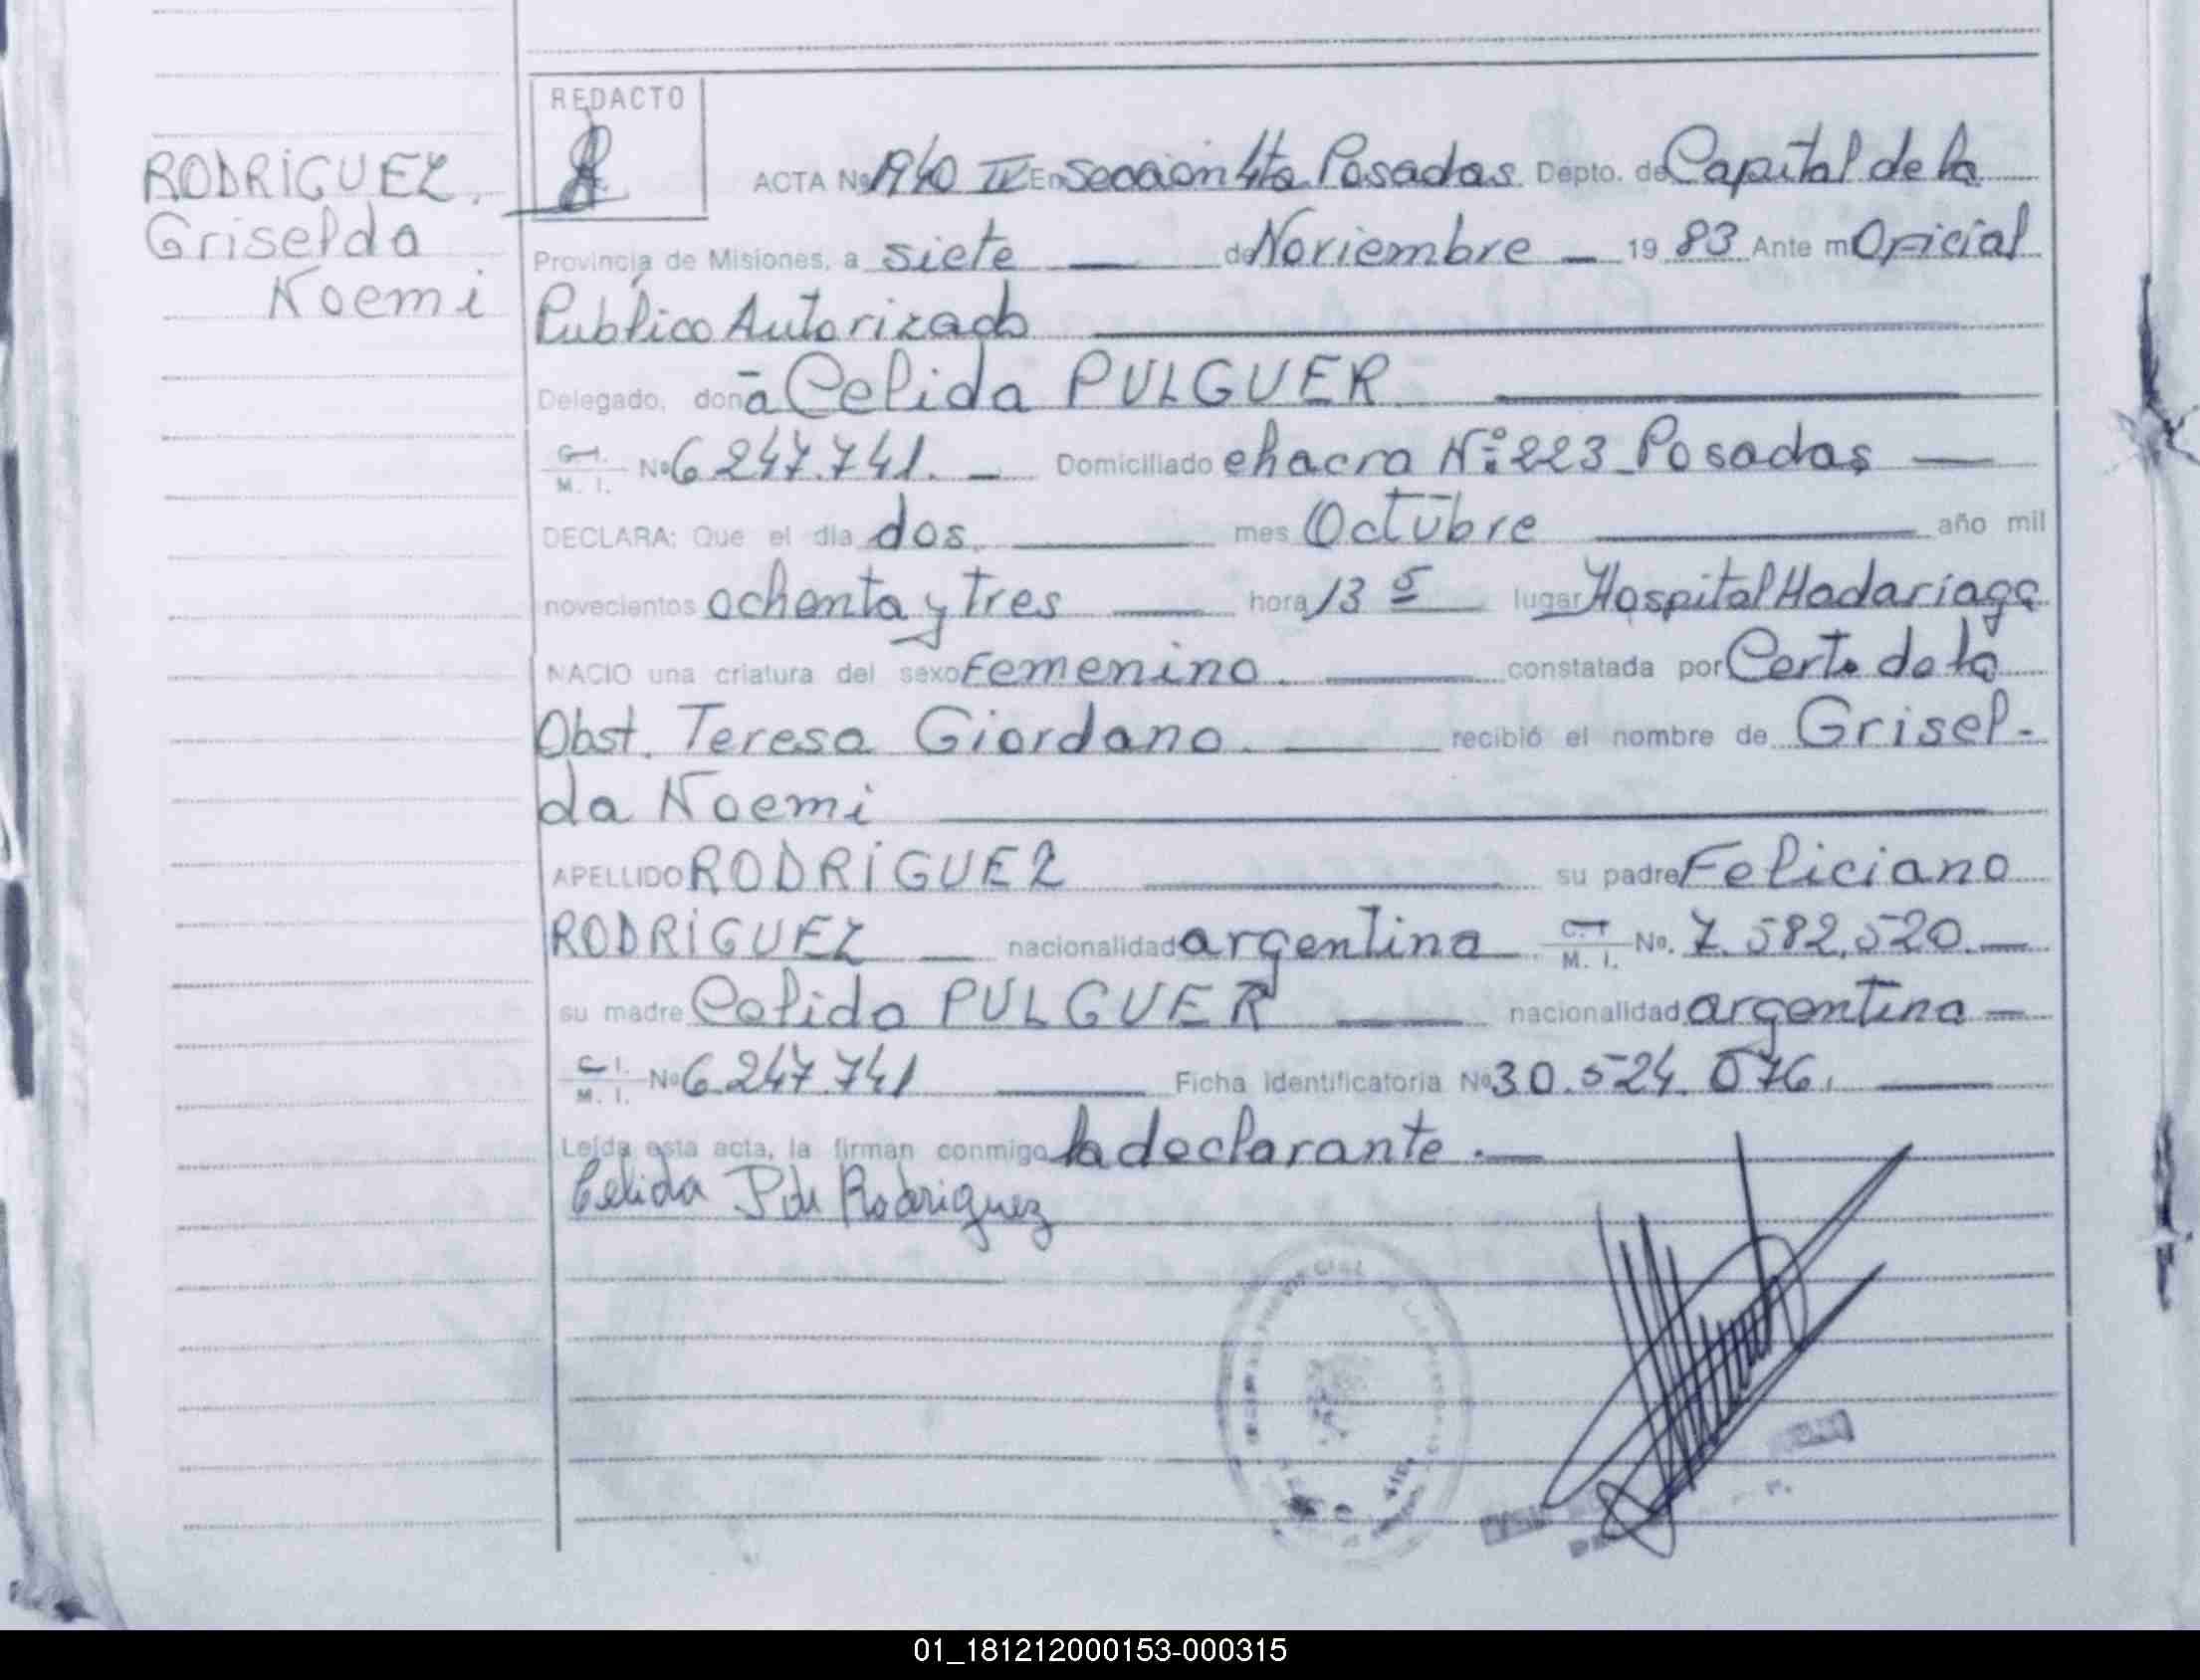 REDACTO
RODRIGUEZ,
Griselda
Noemi
ACTA Nº 1940 IV En Sección 4ta Posadas Depto. de Capital de la
Provincia de Misiones, a siete de Noviembre 19 83 Ante mi Oficial
Público Autorizado
Delegado, doña Celida PULGUER
C. I. M. I. Nº 6.247.741. Domiciliado chacra Nº 223 Posadas
DECLARA: Que el día dos mes Octubre año mil
novecientos ochenta y tres hora 13 5 lugar Hospital Madariaga
NACIO una criatura del sexo Femenino. constatada por Cert. de la
Obst. Teresa Giordano. recibió el nombre de Grisel-
da Noemi
APELLIDO RODRIGUEZ su padre Feliciano
RODRIGUEZ nacionalidad argentina C. I. M. I. Nº. 7.582.520.
su madre Celida PULGUER nacionalidad argentina
C. I. M. I. Nº 6.247.741 Ficha identificatoria Nº 30.524.076.
Leída esta acta, la firman conmigo la declarante.
Celida P de Rodriguez
01_181212000153-000315